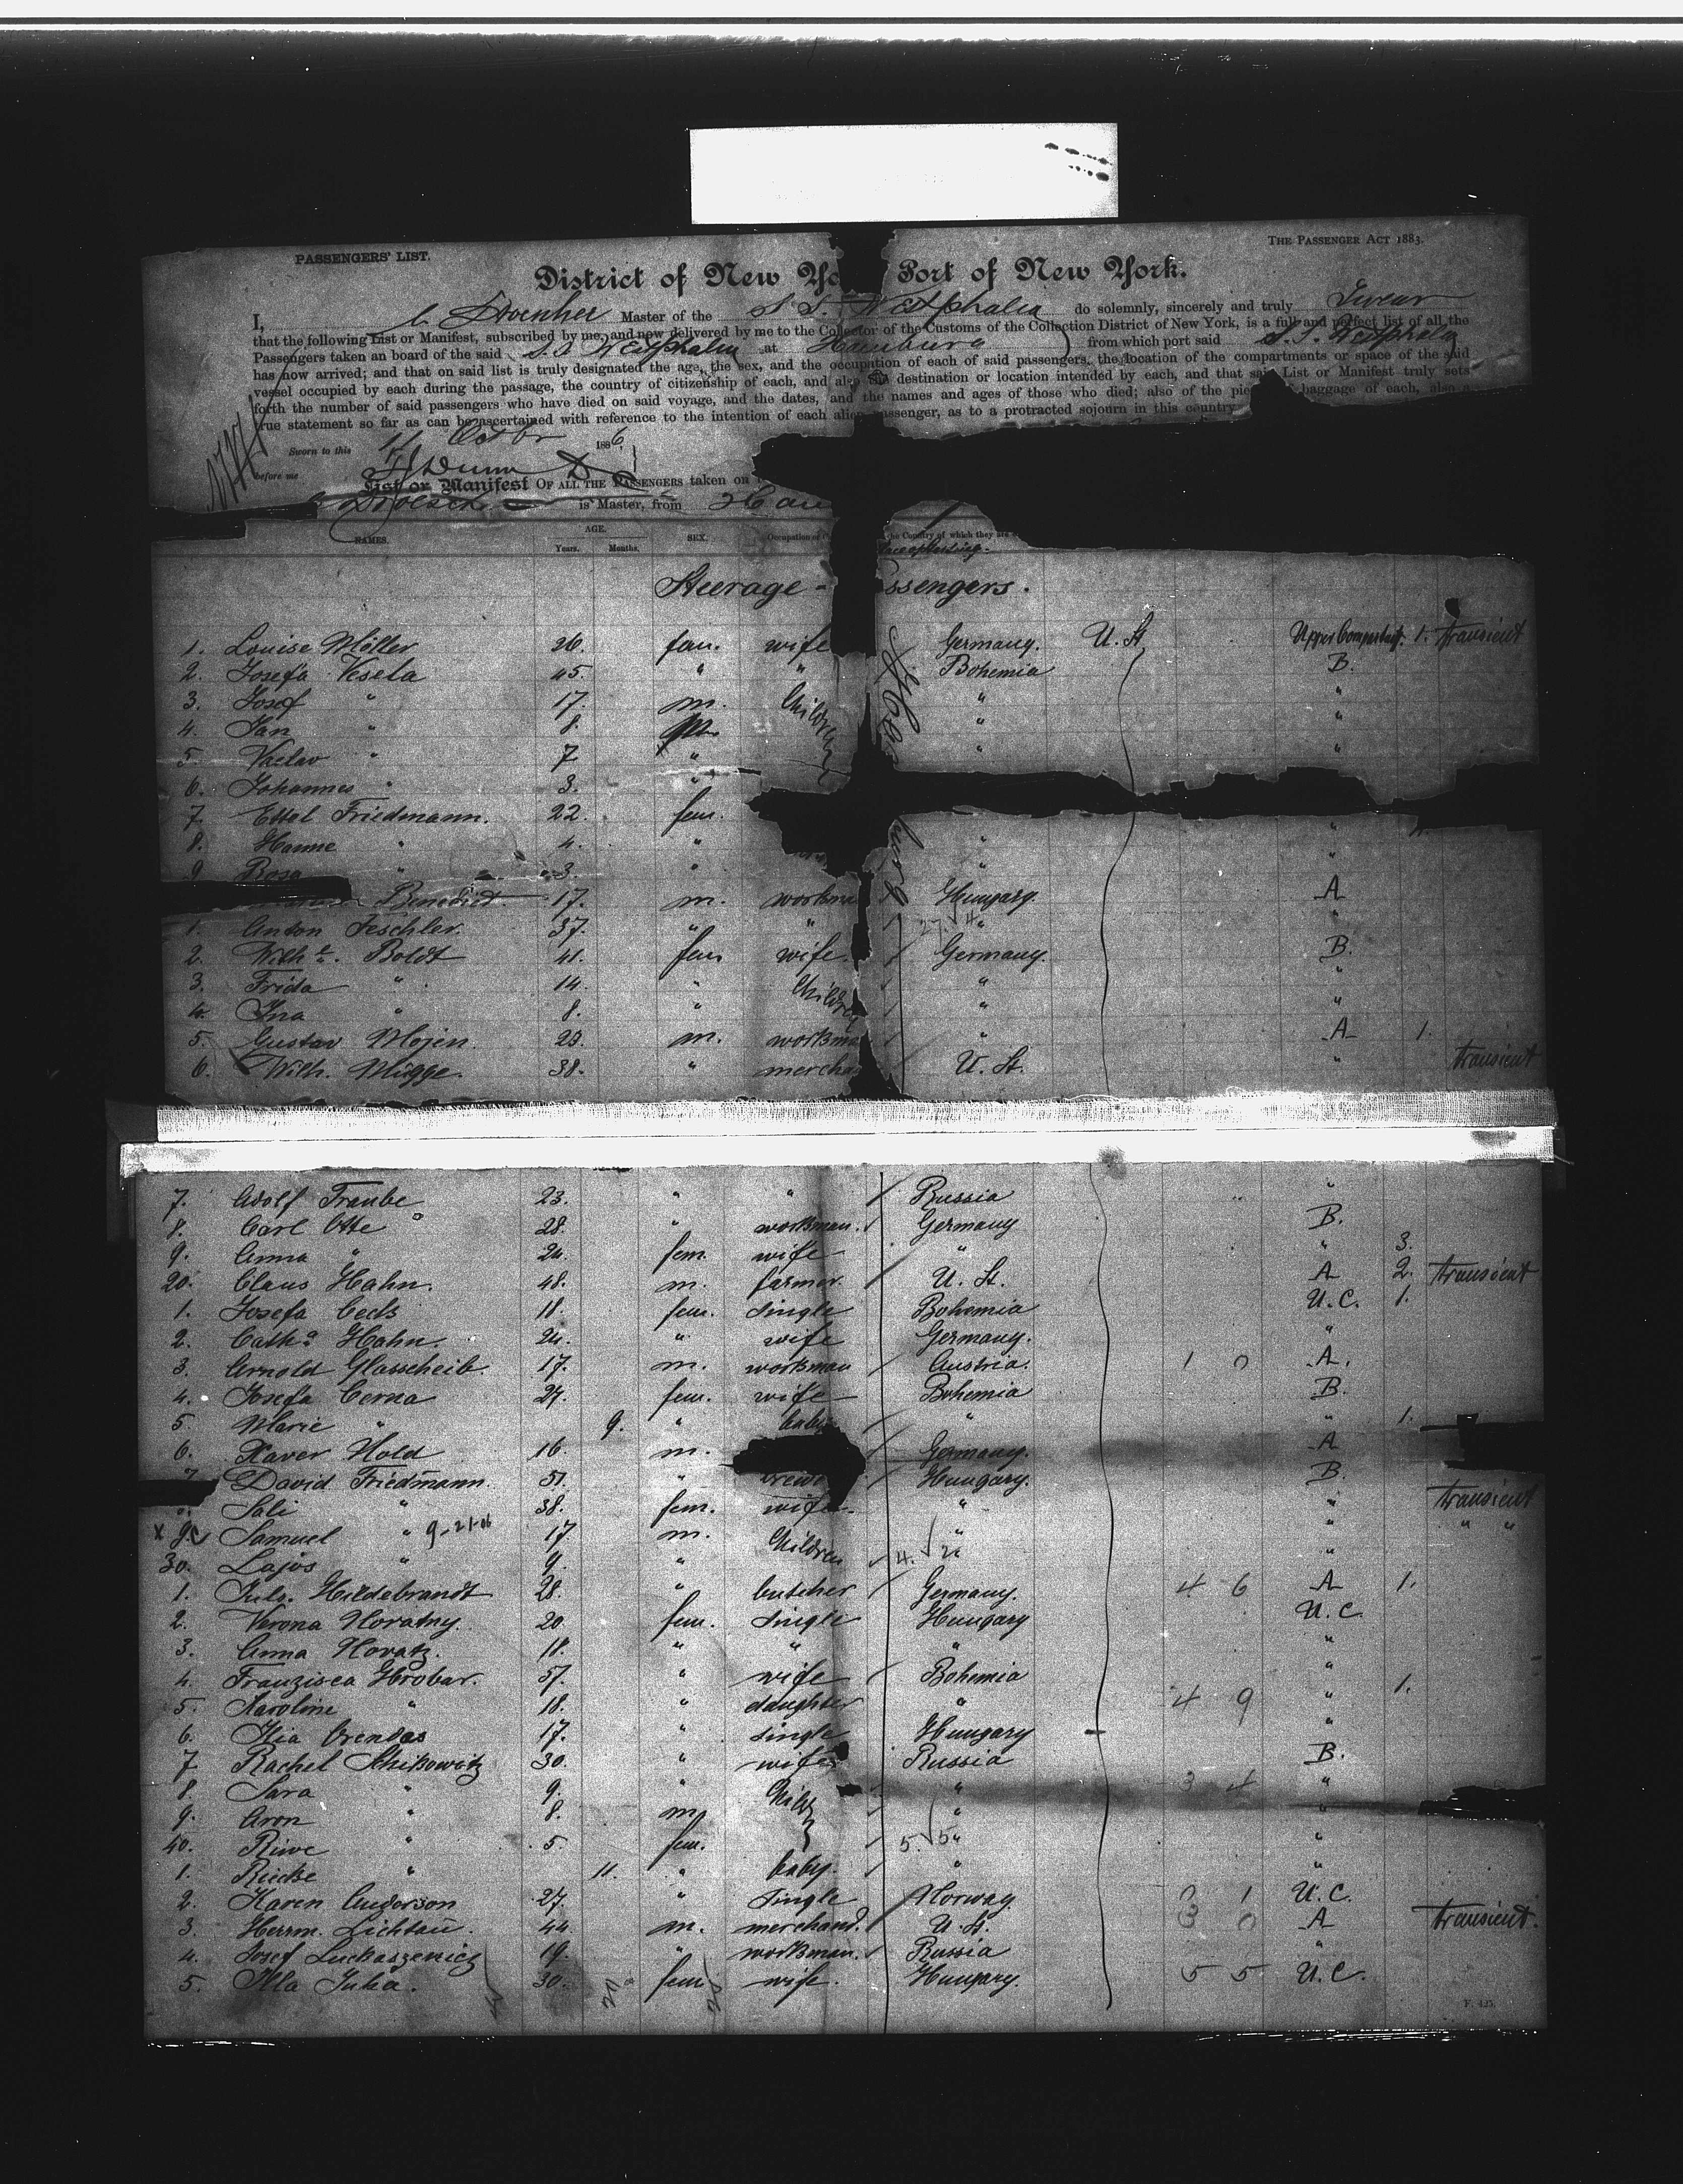 PASSENGERS' LIST.
THE PASSENGER ACT 1883.
District of New Yo Port of New York.
I, Master of the S. S. Westphalia do solemnly, sincerely and truly Swear
that the following List or Manifest, subscribed by me, and now delivered by me to the Collector of the Customs of the Collection District of New York, is a full and perfect list of all the
Passengers taken on board of the said S. S. Westphalia at Hamburg from which port said S. S. Westphalia
has now arrived; and that on said list is truly designated the age, the sex, and the occupation of each of said passengers, the location of the compartments or space of the said
vessel occupied by each during the passage, the country of citizenship of each, and also the destination or location intended by each, and that said List or Manifest truly sets
forth the number of said passengers who have died on said voyage, and the dates, and the names and ages of those who died; also of the pie baggage of each, also a
true statement so far as can be ascertained with reference to the intention of each alien passenger, as to a protracted sojourn in this country
Sworn to this 11 Octbr 1886.
before me
List or Manifest OF ALL THE PASSENGERS taken on
is Master, from Ham
NAMES. AGE. Years. Months. SEX. Occupation of the Country of which they are
Steerage - ssengers.
1. Louise Möller 26. fem. wife Germany. U. St. Upper Compartmt. 1. transient
2. Josefa Vesela 45. " " Bohemia B.
3. Josef " 17. m. Children " "
4. Jan " 8. " "
5. Vaclav " 7 " " "
6. Johannes " 3. "
7. Ettel Friedmann. 22. fem. "
8. Hanne " 4. " " "
9 Rosa " 3. " " "
Benedict 17. m. workma Hungary. A
1. Anton Feschler. 37. " " " "
2. Wilhe. Boldt 41. fem wife. Germany. B.
3. Frida " 14. " Children " "
4. Ina " 8. " "
5. Gustav Mojen. 23. m. workma " A 1.
6. Wilh. Mügge. 38. " mercha U. St. " transient
7. Adolf Traube 23. " " Russia "
8. Carl Otte 28. " workman. Germany B.
9. Anna " 24. fem. wife " " 3.
20. Claus Hahn. 48. m. farmer U. St. A 2. transient
1. Josefa Cech 18. fem. single Bohemia U.C. 1.
2. Catha Hahn. 24. " wife Germany. "
3. Arnold Glasscheib. 17. m. workman Austria. 1 0 A.
4. Josefa Cerna 27. fem. wife Bohemia B.
5 Marie " 9. " baby " " 1.
6. Xaver Hold 16. m. Germany. A
7 David Friedmann. 51. " brewer Hungary. B.
8. Sali " 38. fem. wife " " transient
x 9. Samuel " 9-21-06 17 m. Children " " " "
30. Lajos " 9. " "
1. Juls. Hildebrandt 28. " butcher Germany. 4 6 A 1.
2. Verona Novatny. 20. fem. single Hungary U.C.
3. Anna Novatz. 18. " " " "
4. Franzisca Hrobar. 57. " wife Bohemia "
5. Karoline " 18. " daughter " 4 9 " 1.
6. Ilia Orendas 17. " single Hungary "
7 Rachel Schikowitz 30. " wife Russia B.
8 Sara " 9. " Children " 3 4 "
9. Aron " 8. m. " "
40. Riwe " 5 fem. " "
1. Riecke " 11. " baby. " "
2. Karen Anderson 27. " single Norway 3 1 U.C.
3. Herrm. Lichtau 44 m. merchand. U. St. 3 0 A transient.
4. Josef Luckaszenicz 19. " workman. Russia "
5. Illa Juha. 30. fem wife. Hungary. 5 5 U.C.